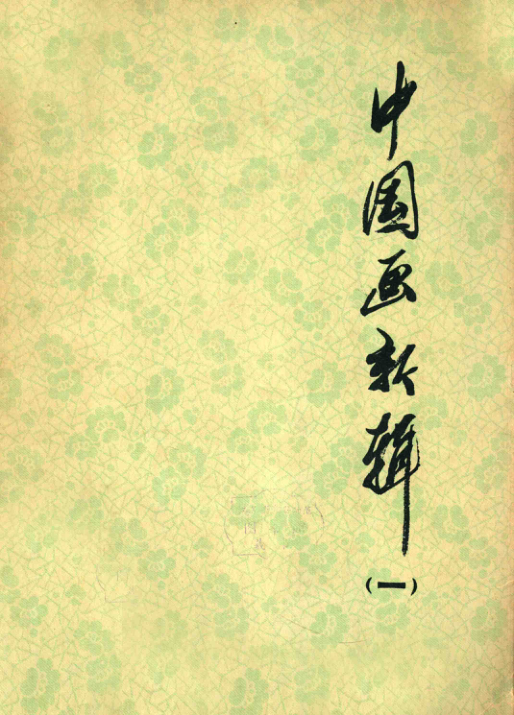 中国画新辑
(一)